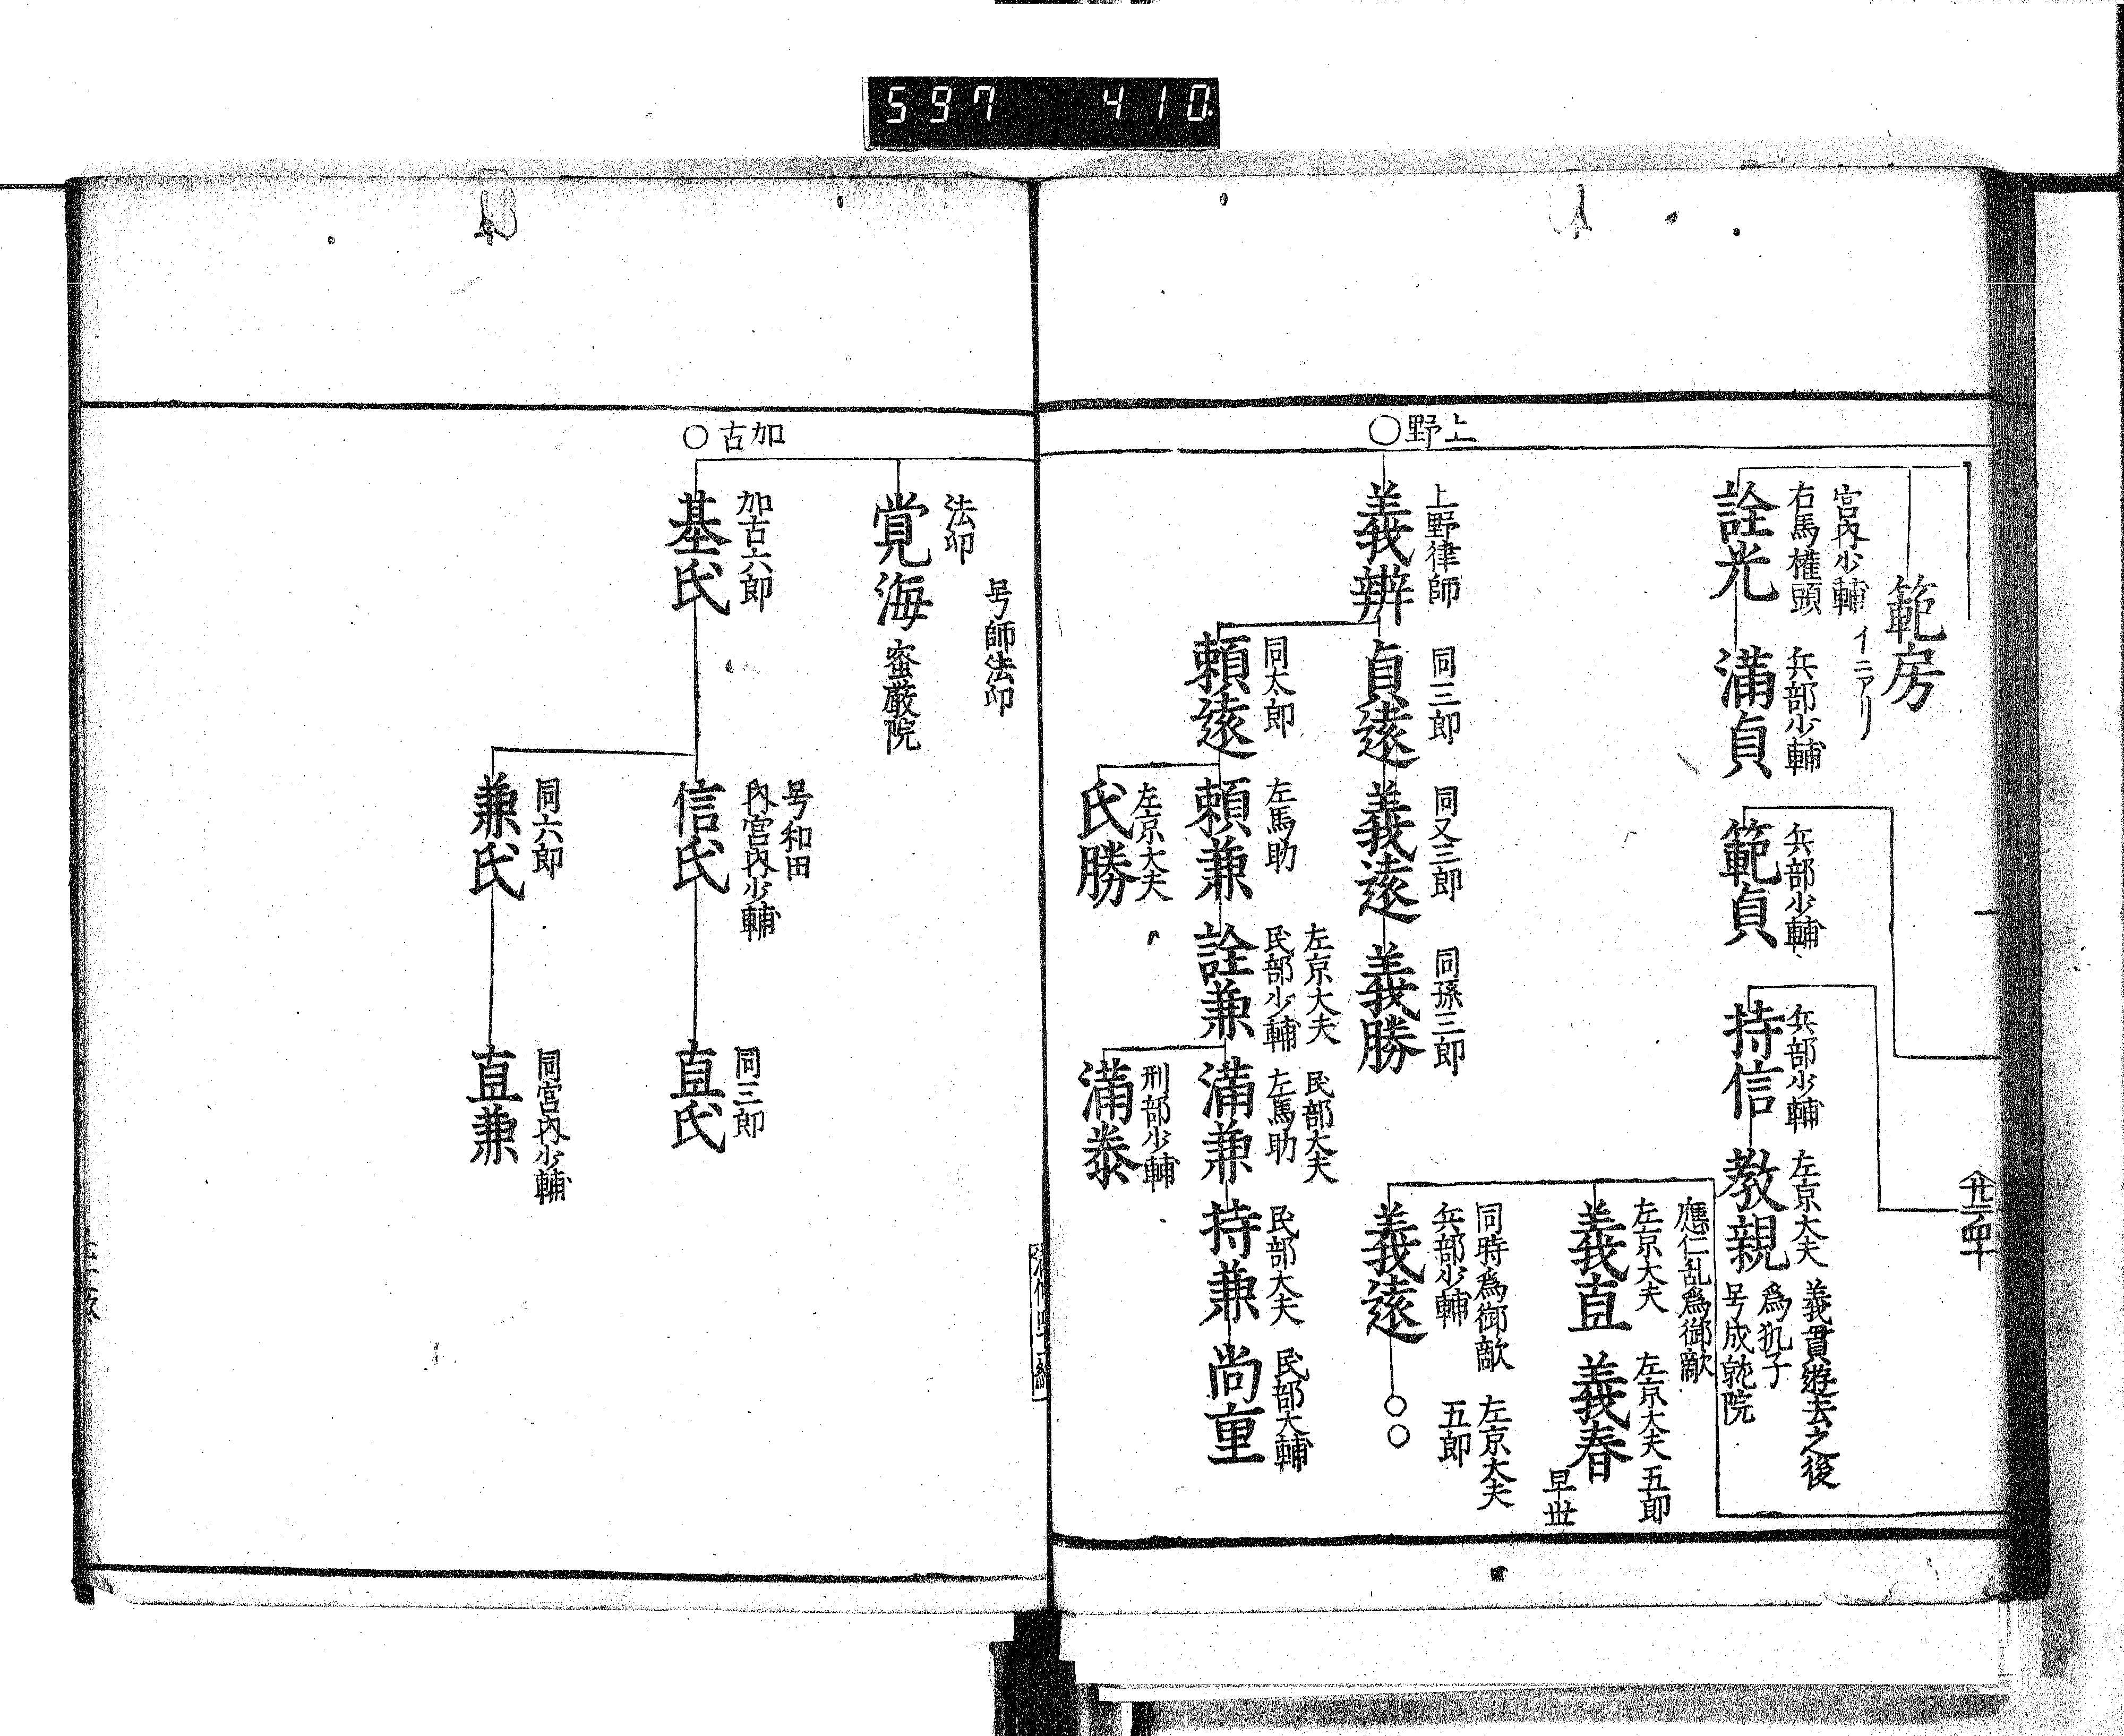 597 410
範房
イニアリ
宮内少輔
右馬権頭
詮光
兵部少輔
満貞
兵部少輔
範貞
兵部少輔
持信
左京大夫
教親
義貫遊去之後
為猶子
号成就院
應仁乱為御敵
左京大夫
義直
左京大夫 五郎
義春
早世
同時為御敵
兵部少輔
義遠
左京大夫
五郎
○○
上野○
上野律師
義辨
同三郎
貞遠
同又三郎
義遠
同孫三郎
義勝
同太郎
頼遠
左馬助
頼兼
左京大夫
民部少輔
詮兼
民部大夫
左馬助
満兼
民部大夫
持兼
民部大輔
尚重
左京大夫
氏勝
刑部少輔
満泰
号師法印
法印
覚海
蜜厳院
加古○
加古六郎
基氏
号和田
内宮内少輔
信氏
同三郎
直氏
同六郎
兼氏
同宮内少輔
直兼